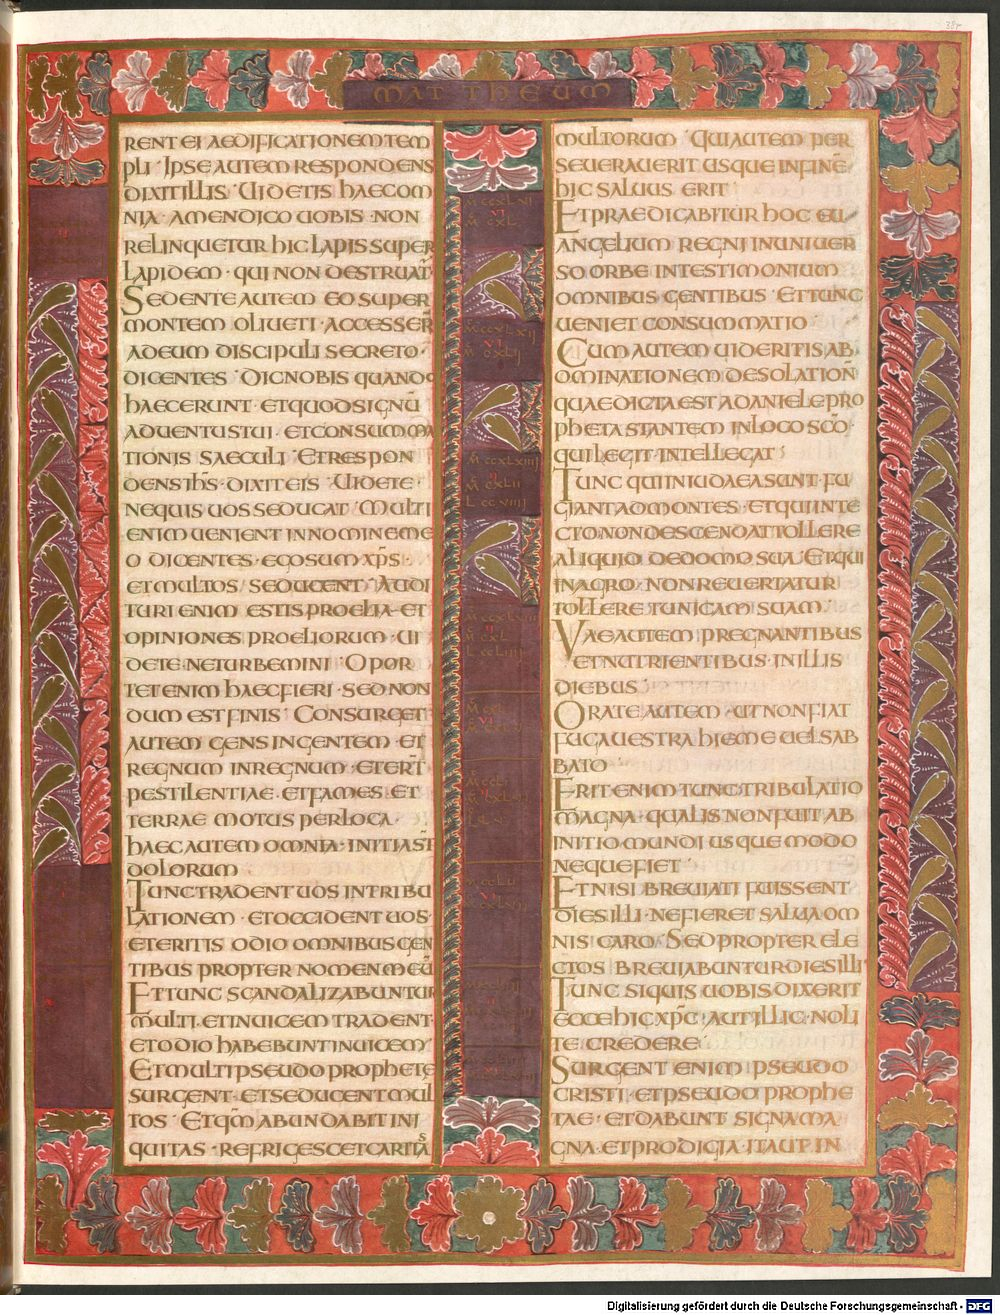 MATTHEUM
RENT EI AEDIFICATIONEM TEM
PLI · IPSE AUTEM RESPONDENS
DIXIT ILLIS · UIDETIS HAEC OM
NIA · AMEN DICO UOBIS · NON
RELINQUETUR HIC LAPIS SUPER
LAPIDEM · QUI NON DESTRUAT̄
SEDENTE AUTEM EO SUPER
MONTEM OLIUETI · ACCESSER̄
AD EUM DISCIPULI SECRETO ·
DICENTES · DIC NOBIS QUANDO
HAEC ERUNT · ET QUOD SIGNŪ
ADUENTUS TUI · ET CONSUMMA
TIONIS SAECULI · ET RESPON
DENS IH̄S · DIXIT EIS · UIDETE ·
NE QUIS UOS SEDUCAT · MULTI
ENIM UENIENT IN NOMINE ME
O DICENTES · EGO SUM XP̄S ·
ET MULTOS SEDUCENT · AUDI
TURI ENIM ESTIS PROELIA · ET
OPINIONES PROELIORUM · UI
DETE · NE TURBEMINI · OPOR
TET ENIM HAEC FIERI · SED NON
DUM EST FINIS · CONSURGET
AUTEM GENS IN GENTEM · ET
REGNUM IN REGNUM · ET ER̄T
PESTILENTIAE · ET FAMES · ET
TERRAE MOTUS PER LOCA ·
HAEC AUTEM OMNIA · INITIA S̄T
DOLORUM
TUNC TRADENT UOS IN TRIBU
LATIONEM · ET OCCIDENT UOS ·
ET ERITIS ODIO OMNIBUS GEN
TIBUS PROPTER NOMEN MEŪ
ET TUNC SCANDALIZABUNTUR
MULTI · ET INUICEM TRADENT ·
ET ODIO HABEBUNT INUICEM
ET MULTI PSEUDO PROPHETE
SURGENT · ET SEDUCENT MUL
TOS · ET QM̄ ABUNDABIT INI
QUITAS · REFRIGESCET CARITAS
MULTORUM · QUI AUTEM PER
SEUERAUERIT USQUE IN FINĒ
HIC SALUUS ERIT
ET PRAEDICABITUR HOC EU
ANGELIUM REGNI IN UNIUER
SO ORBE IN TESTIMONIUM
OMNIBUS GENTIBUS · ET TUNC
UENIET CONSUMMATIO ·
CUM AUTEM UIDERITIS AB
OMINATIONEM DESOLATION̄
QUAE DICTA EST A DANIELE PRO
PHETA STANTEM IN LOCO SC̄O ·
QUI LEGIT · INTELLEGAT ·
TUNC QUI IN IUDAEA SUNT · FU
GIANT AD MONTES · ET QUI IN TE
CTO NON DESCENDAT TOLLERE
ALIQUID DE DOMO SUA · ET QUI
IN AGRO · NON REUERTATUR
TOLLERE TUNICAM SUAM
VAE AUTEM PREGNANTIBUS
ET NUTRIENTIBUS · IN ILLIS
DIEBUS ·
ORATE AUTEM · UT NON FIAT
FUGA UESTRA HIEME UEL SAB
BATO ·
ERIT ENIM TUNC TRIBULATIO
MAGNA · QUALIS NON FUIT AB
INITIO MUNDI USQUE MODO
NEQUE FIET ·
ET NISI BREUIATI FUISSENT
DIES ILLI · NE FIERET SALUA OM
NIS CARO · SED PROPTER ELE
CTOS BREUIABUNTUR DIES ILLI ·
TUNC SI QUIS UOBIS DIXERIT
ECCE HIC XP̄C · AUT ILLIC · NOLI
TE CREDERE ·
SURGENT ENIM PSEUDO
CRISTI · ET PSEUDO PROPHE
TAE · ET DABUNT SIGNA MA
GNA · ET PRODIGIA · ITA UT IN
Digitalisierung gefördert durch die Deutsche Forschungsgemeinschaft - DFG